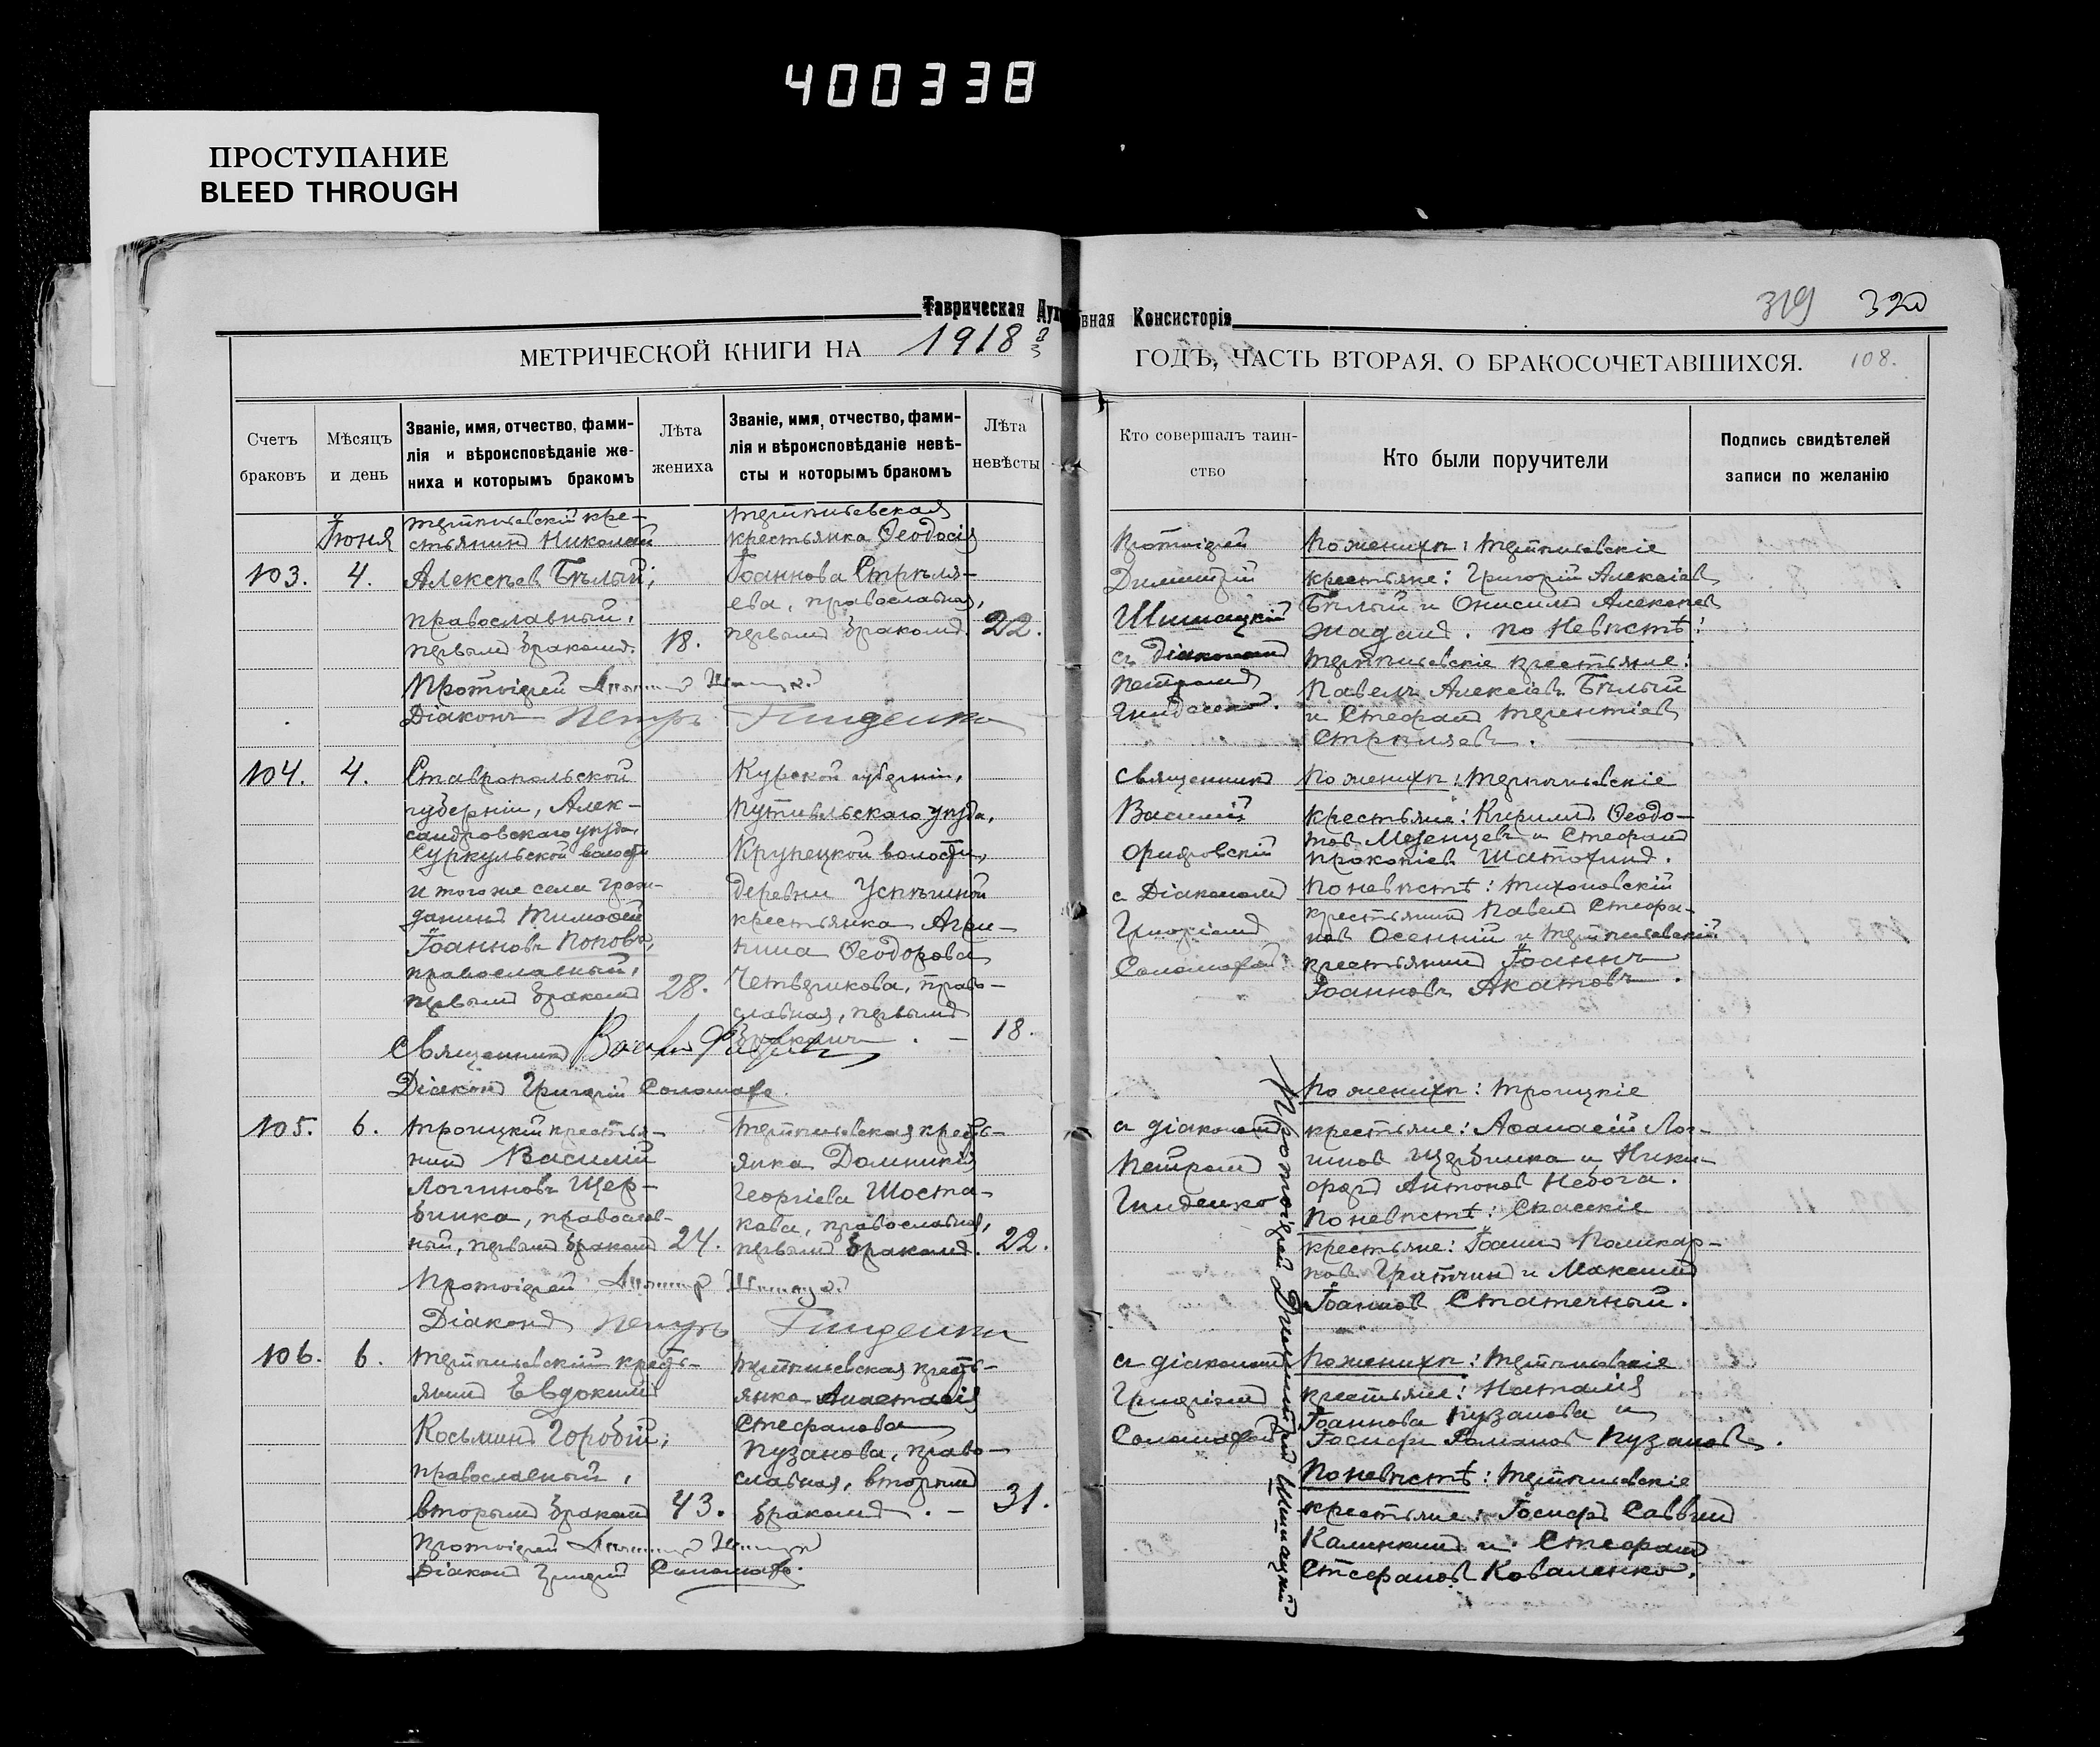 400338
ПРОСТУПАНИЕ
BLEED THROUGH
Таврическая Духовная Консисторія
319 320
МЕТРИЧЕСКОЙ КНИГИ НА 1918 ГОДЪ, ЧАСТЬ ВТОРАЯ, О БРАКОСОЧЕТАВШИХСЯ. 108.
Счетъ
браковъ
Мѣсяцъ
и день
Званіе, имя, отчество, фами-
лія и вѣроисповѣданіе же-
ниха и которымъ бракомъ
Лѣта
жениха
Званіе, имя, отчество, фами-
лія и вѣроисповѣданіе невѣ-
сты и которымъ бракомъ
Лѣта
невѣсты
Кто совершалъ таин-
ство
Кто были поручители
Подпись свидѣтелей
записи по желанію
Іюня
103. 4.
Терпѣніевскій кре-
стьянинъ Николай
Алексѣевъ Бѣлый;
православный,
первымъ бракомъ.
18.
Терпѣніевская
крестьянка Ѳеодосія
Іоаннова Стрѣля-
ева, православная,
первымъ бракомъ.
22.
Протоіерей
Димитрій
Шишацкій
съ діакономъ
Петромъ
Гниденко.
По женихѣ: Терпѣніевскіе
крестьяне: Григорій Алексіевъ
Бѣлый и Онисимъ Алексѣевъ
Жаданъ. По невѣстѣ:
Терпѣніевскіе крестьяне:
Павелъ Алексіевъ Бѣлый
и Стефанъ Терентіевъ
Стрѣляевъ.
Протоіерей
Діаконъ Петръ Гниденко
104. 4.
Ставропольской
губерніи, Алек-
сандровскаго уѣзда,
Суркульской волости
и того же села граж-
данинъ Тимофей
Іоанновъ Поповъ,
православный,
первымъ бракомъ
28.
Курской губерніи,
Путивльскаго уѣзда,
Крупецкой волости,
деревни
крестьянка Агри-
пина Ѳеодорова
Четверикова, право-
славная, первымъ
бракомъ. –
18.
Священникъ
Василій
с Діакономъ
Григоріемъ
По женихѣ: Терпѣніевскіе
крестьяне: Кириллъ Ѳеодо-
товъ Мезенцевъ и Стефанъ
Прокопіевъ Шатохинъ.
По невѣстѣ: Тихоновскій
крестьянинъ Павелъ Стефа-
новъ Осенній и Терпѣніевскій
крестьянинъ Іоаннъ
Іоанновъ Акатовъ.
Священникъ
Діаконъ Григорій
105. 6.
Троицкій крестья-
нинъ Василій
Логгиновъ Щер-
бинка, православ-
ный, первымъ бракомъ
24.
Терпѣніевская кресть-
янка Домникія
Георгіева Шоста-
кова, православная,
первымъ бракомъ.
22.
съ діакономъ
Петромъ
Гниденко
По женихѣ: Троицкіе
крестьяне: Аѳанасій Лог-
гиновъ Щербинка и Ники-
форъ Антоновъ Небога.
По невѣстѣ: Спасскіе
крестьяне: Іоаннъ Поликар-
повъ и Максимъ
Іоанновъ Статечный.
Протоіерей
Діаконъ Петръ Гниденко
106. 6.
Терпѣніевскій кресть-
янинъ Евдокимъ
Косьминъ Горобій;
православный,
вторымъ бракомъ
43.
Терпѣніевская кресть-
янка Анастасія
Стефанова
Пузанова, право-
славная, вторымъ
бракомъ. –
31.
съ діакономъ
Григоріемъ
По женихѣ: Терпѣніевскіе
крестьяне: Наталія
Іоаннова Пузанова и
Іосифъ Романовъ Пузановъ.
По невѣстѣ: Терпѣніевскіе
крестьяне: Іосифъ Саввинъ
Калинкинъ и Стефанъ
Стефановъ Коваленко.
Протоіерей
Діаконъ Григорій
Протоіерей Димитрій Шишацкій